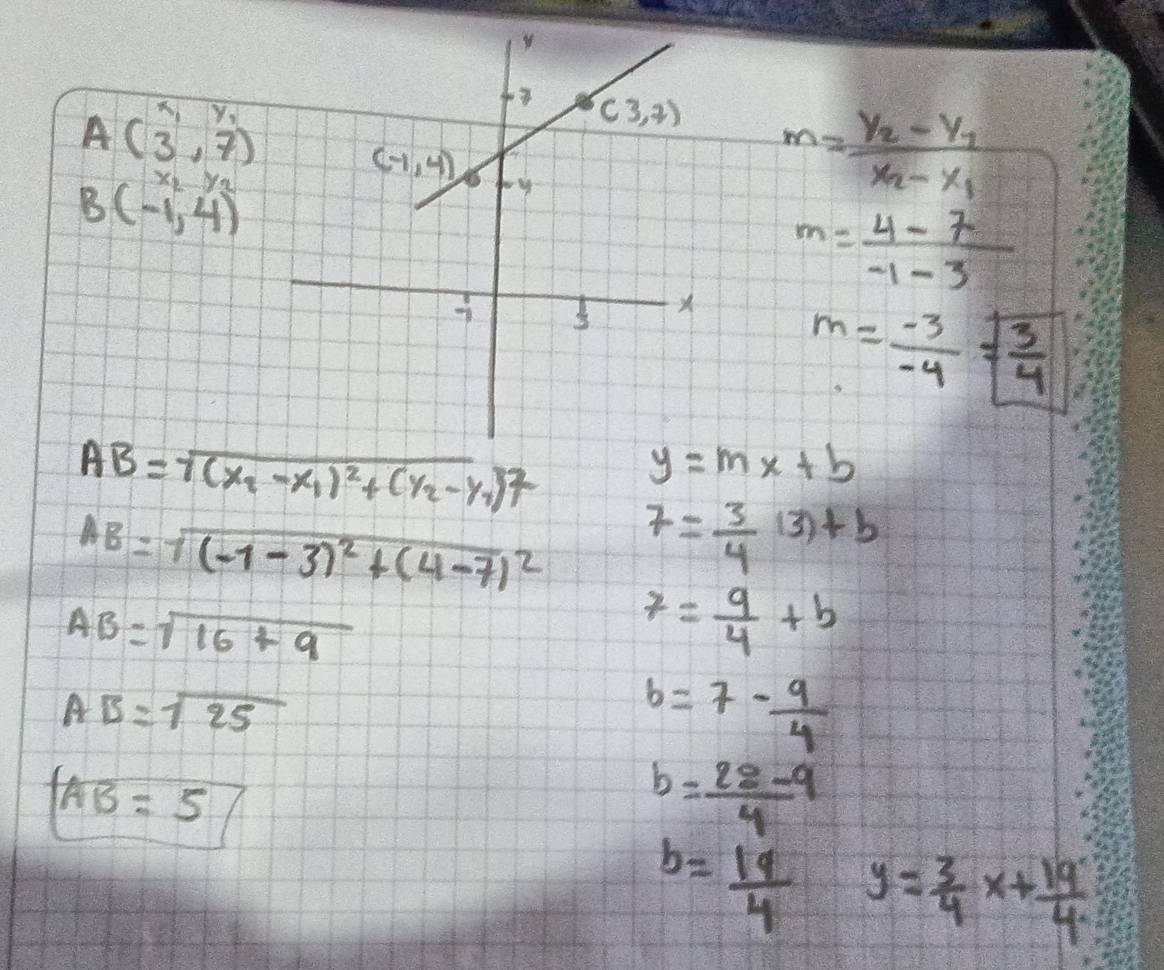 x₁ y₁
A (3, 7)
x₂ y₂
B (-1, 4)
y
7
(3,7)
(-1,4)
4
x
-1
3
m = \frac{y₂ - y₁}{x₂ - x₁}
m = \frac{4 - 7}{-1 - 3}
m = \frac{-3}{-4} = \frac{3}{4}
AB = √(x₂ - x₁)² + (y₂ - y₁)²
AB = √(-1 - 3)² + (4 - 7)²
AB = √16 + 9
AB = √25
AB = 5
y = mx + b
7 = \frac{3}{4} (3) + b
7 = \frac{9}{4} + b
b = 7 - \frac{9}{4}
b = \frac{28 - 9}{4}
b = \frac{19}{4}
y = \frac{3}{4} x + \frac{19}{4}